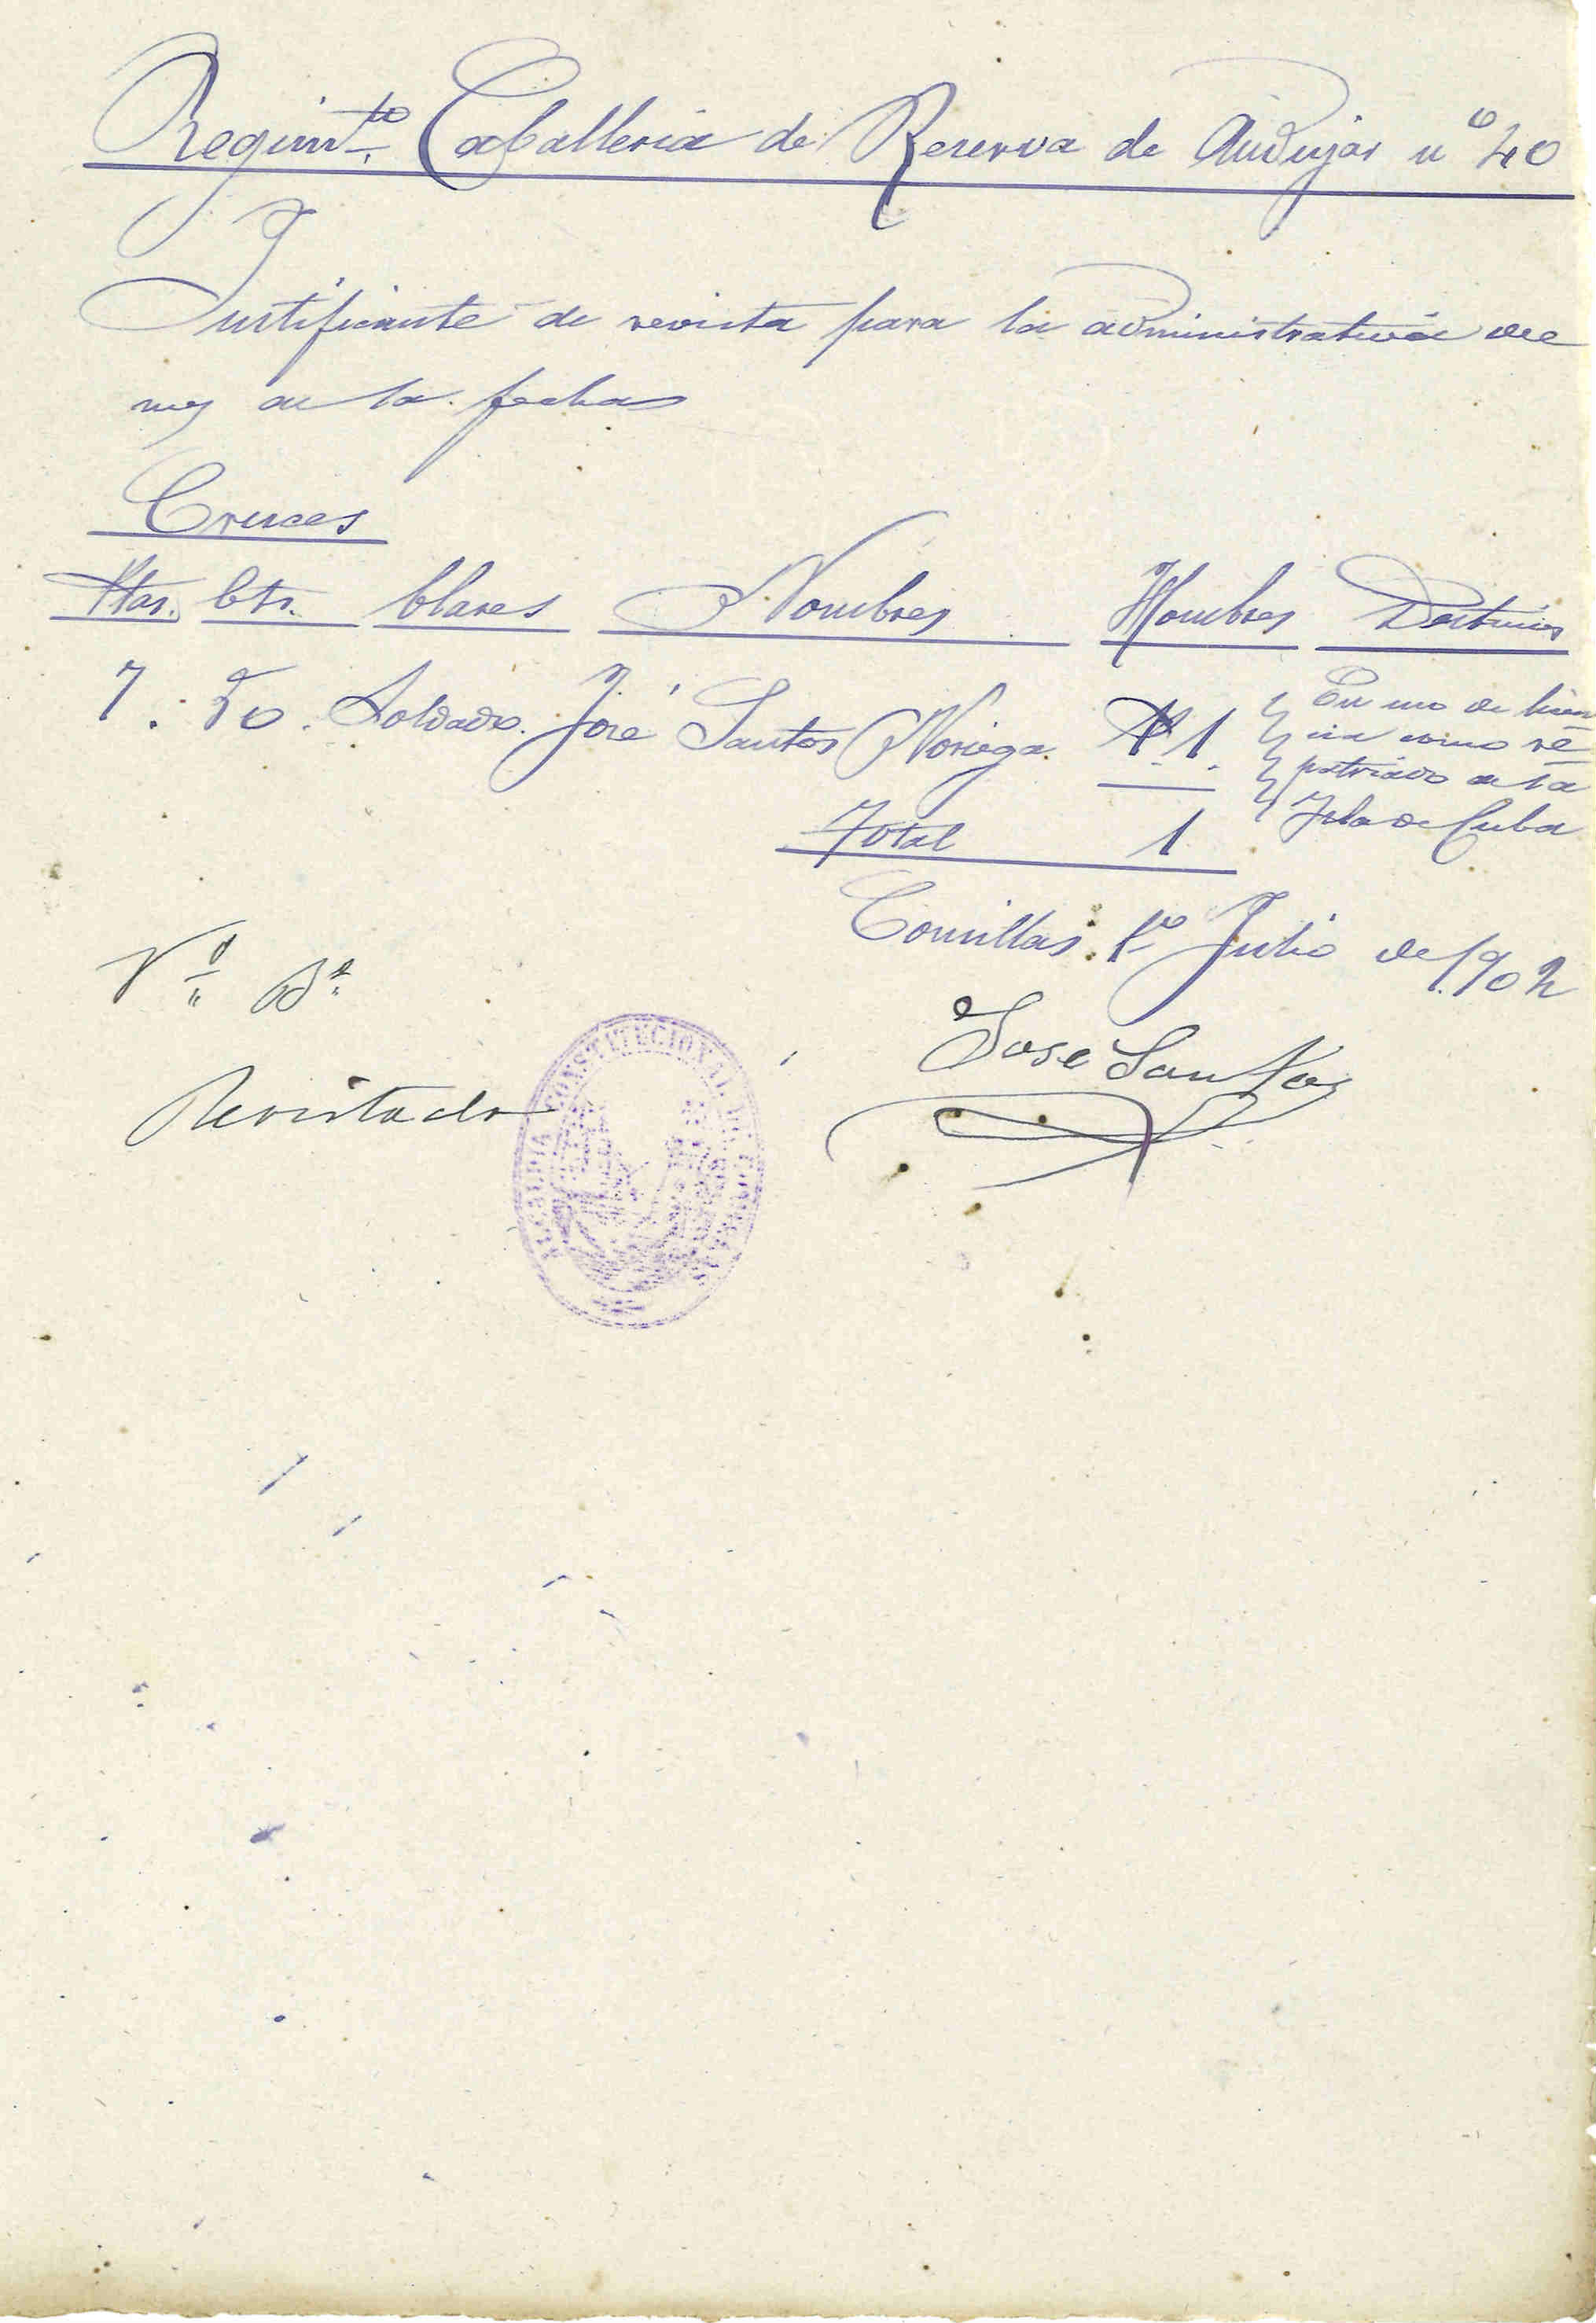 Regim.to Caballeria de Reserva de Andujar nº 40
Justificante de revista para la administrativa del
mes de la fecha
Cruces
Ptas. Cts. Clases Nombres Hombres Destinos
7. 50. Soldado. José Santos Noriega. 1.
En uso de licen
cia como re
patriado de la
Isla de Cuba
Total 1
Comillas 1º Julio de 1902
Vº Bº
Jose Santos
Revistado
ALCALDIA CONSTITUCIONAL DE COMILLAS